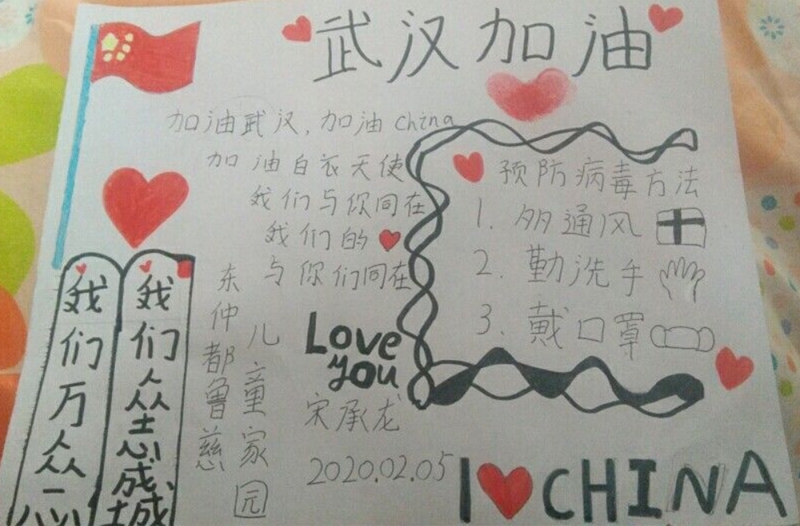 武汉加油
加油武汉,加油China
加油白衣天使
我们与你同在
我们的
与你们同在
预防病毒方法
1. 多通风
2. 勤洗手
3. 戴口罩
我们万众一心
我们众志成城
东仲都鲁慈
儿童家园
Love
you
宋承龙
2020.02.05
I CHINA